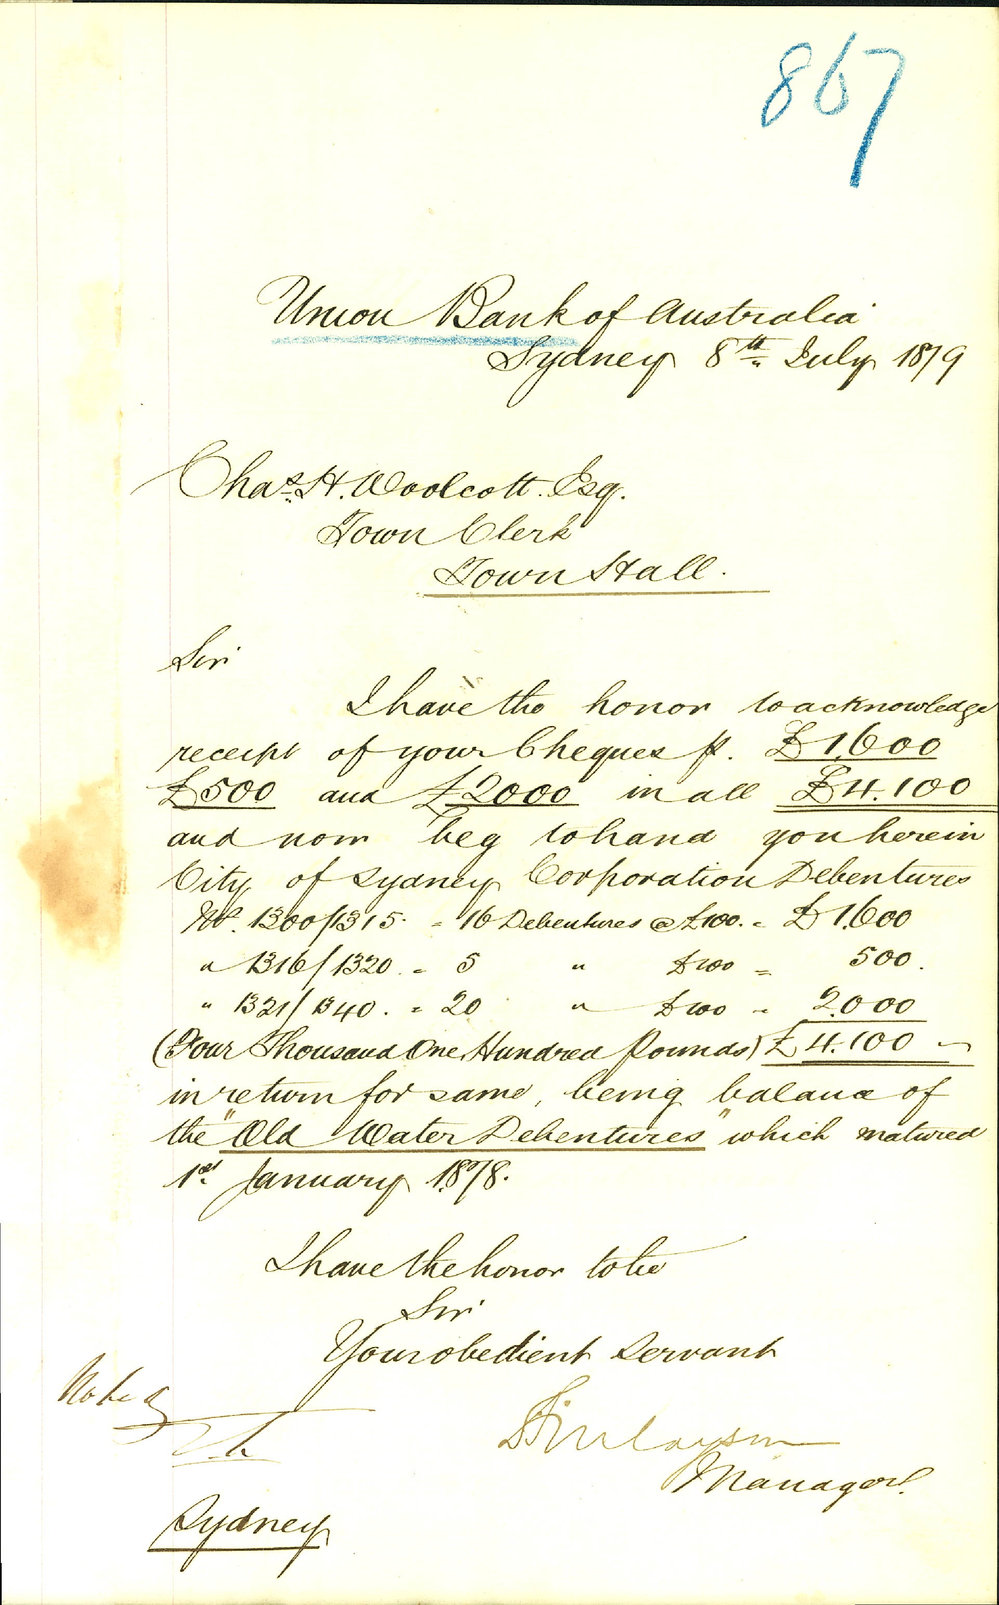 867
Union Bank of Australia
Sydney 8th July 1879
Chas. H. Woolcott. Esq.
Town Clerk
Town Hall.
Sir
I have the honor to acknowledge
receipt of your Cheques p. £1,600
£500 and £2000 in all £4.100
and now beg to hand you herein
City of Sydney Corporation Debentures
No. 1300/1315 - 16 Debentures @ £100. - £1.600
" 1316/1320. - 5 " £100 - 500.
" 1321/1340. - 20 " £100 - 2.000
(Four Thousand One Hundred Pounds) £4.100
in return for same, being balance of
the "Old Water Debentures" which matured
1st January 1878.
I have the honor to be
Sir
Your obedient servant
Finlayson
Manager.
Noted
Sydney